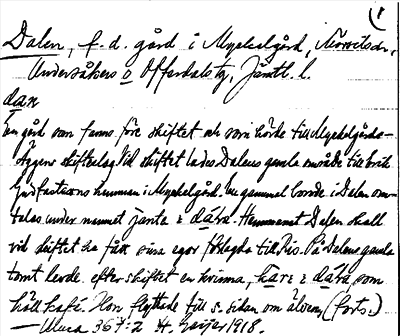 (1
Dalen, f. d. gård i Myckelgård, Norritsdr,
Undersåkers o Offerdals tg, Jämtl. l.
dan
En gård som fanns före skiftet och som hörde till Myckelgårds-
byens skifteslag. Vid skiftet lades Dalens gamla område till
hemman i Myckelgård. En gammal bonde i Dalen om-
talas under namnet jante i dára. Hemmanet Dalen skall
vid skiftet ha fått sina egor förlagda till Ris. På Dalens gamla
tomt levde efter skiftet en kvinna, kare i dára som
höll kafé. Hon flyttade till s. sidan om älven. (forts.)
367:2 H. Geijer 1918.